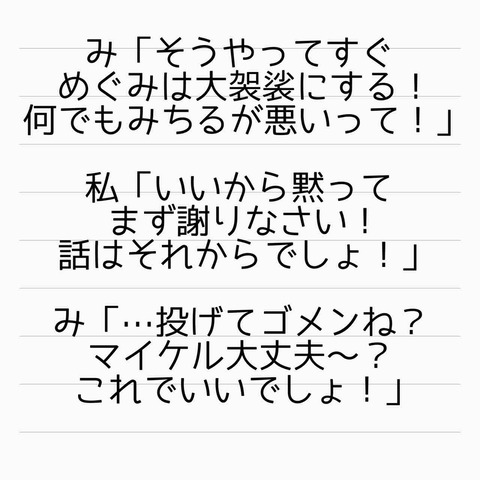 み「そうやってすぐ
めぐみは大袈裟にする！
何でもみちるが悪いって！」
私「いいから黙って
まず謝りなさい！
話はそれからでしょ！」
み「…投げてゴメンね？
マイケル大丈夫～？
これでいいでしょ！」